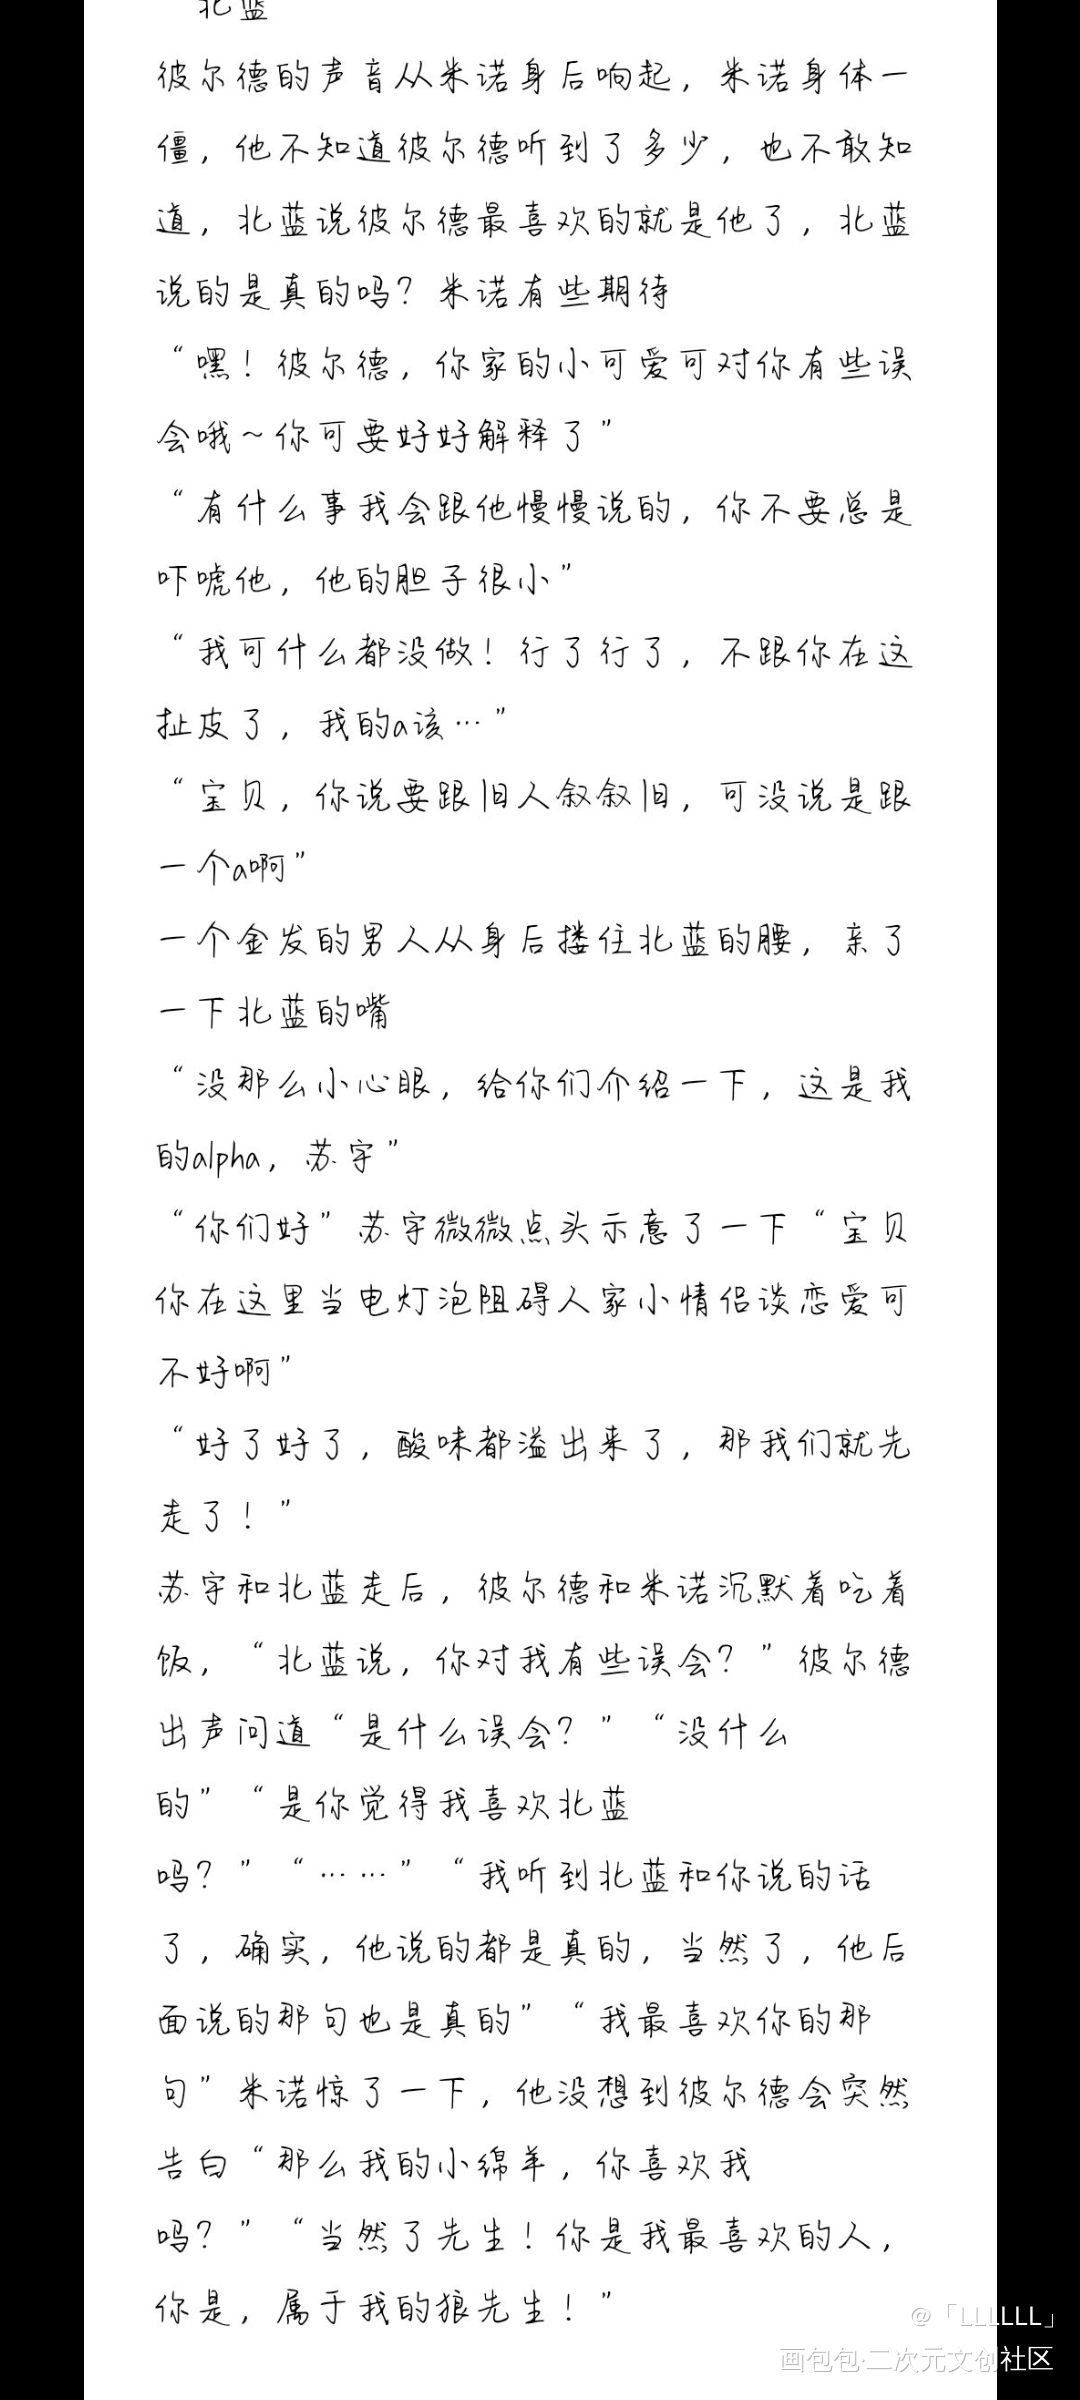 北蓝
彼尔德的声音从米诺身后响起，米诺身体一
僵，他不知道彼尔德听到了多少，也不敢知
道，北蓝说彼尔德最喜欢的就是他了，北蓝
说的是真的吗？米诺有些期待
“嘿！彼尔德，你家的小可爱可对你有些误
会哦～你可要好好解释了”
“有什么事我会跟他慢慢说的，你不要总是
吓唬他，他的胆子很小”
“我可什么都没做！行了行了，不跟你在这
扯皮了，我的a该…”
“宝贝，你说要跟旧人叙叙旧，可没说是跟
一个a啊”
一个金发的男人从身后搂住北蓝的腰，亲了
一下北蓝的嘴
“没那么小心眼，给你们介绍一下，这是我
的alpha，苏宇”
“你们好”苏宇微微点头示意了一下“宝贝
你在这里当电灯泡阻碍人家小情侣谈恋爱可
不好啊”
“好了好了，酸味都溢出来了，那我们就先
走了！”
苏宇和北蓝走后，彼尔德和米诺沉默着吃着
饭，“北蓝说，你对我有些误会？”彼尔德
出声问道“是什么误会？”“没什么
的”“是你觉得我喜欢北蓝
吗？”“……”“我听到北蓝和你说的话
了，确实，他说的都是真的，当然了，他后
面说的那句也是真的”“我最喜欢你的那
句”米诺惊了一下，他没想到彼尔德会突然
告白“那么我的小绵羊，你喜欢我
吗？”“当然了先生！你是我最喜欢的人，
你是，属于我的狼先生！”
@「LLLLLL」
画包包·二次元文创社区